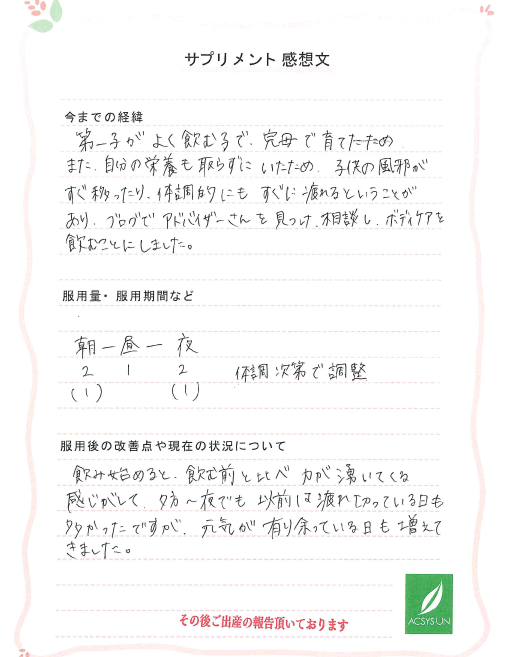 サプリメント 感想文
今までの経緯
第一子がよく飲む子で、完母で育てたため
また、自分の栄養も取らずにいたため、子供の風邪が
すぐ移ったり、体調的にもすぐに疲れるということが
あり、ブログでアドバイザーさんを見つけ、相談し、ボディケアを
飲むことにしました。
服用量・服用期間など
朝 ー 昼 ー 夜
2 1 2 体調次第で調整
(1) (1)
服用後の改善点や現在の状況について
飲み始めると、飲む前と比べ 力が湧いてくる
感じがして、夕方〜夜でも 以前は疲れ切っている日も
多かったですが、元気が有り余っている日も増えて
きました。
その後ご出産の報告頂いております
ACSYSUN